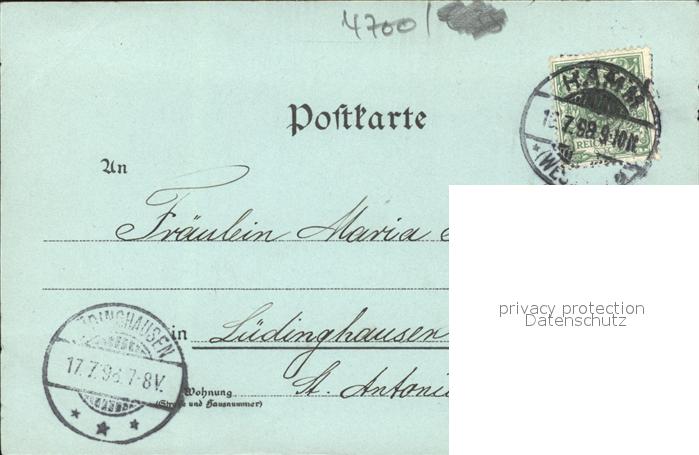 4700/
HAMM
7.98.9-10N
REICH
Postkarte
An
Fräulein Maria
in Lüdinghausen
St. Antoni
Wohnung
(Straße und Hausnummer)
DINGHAUSEN
17.7.98.7-8V.
privacy protection
Datenschutz